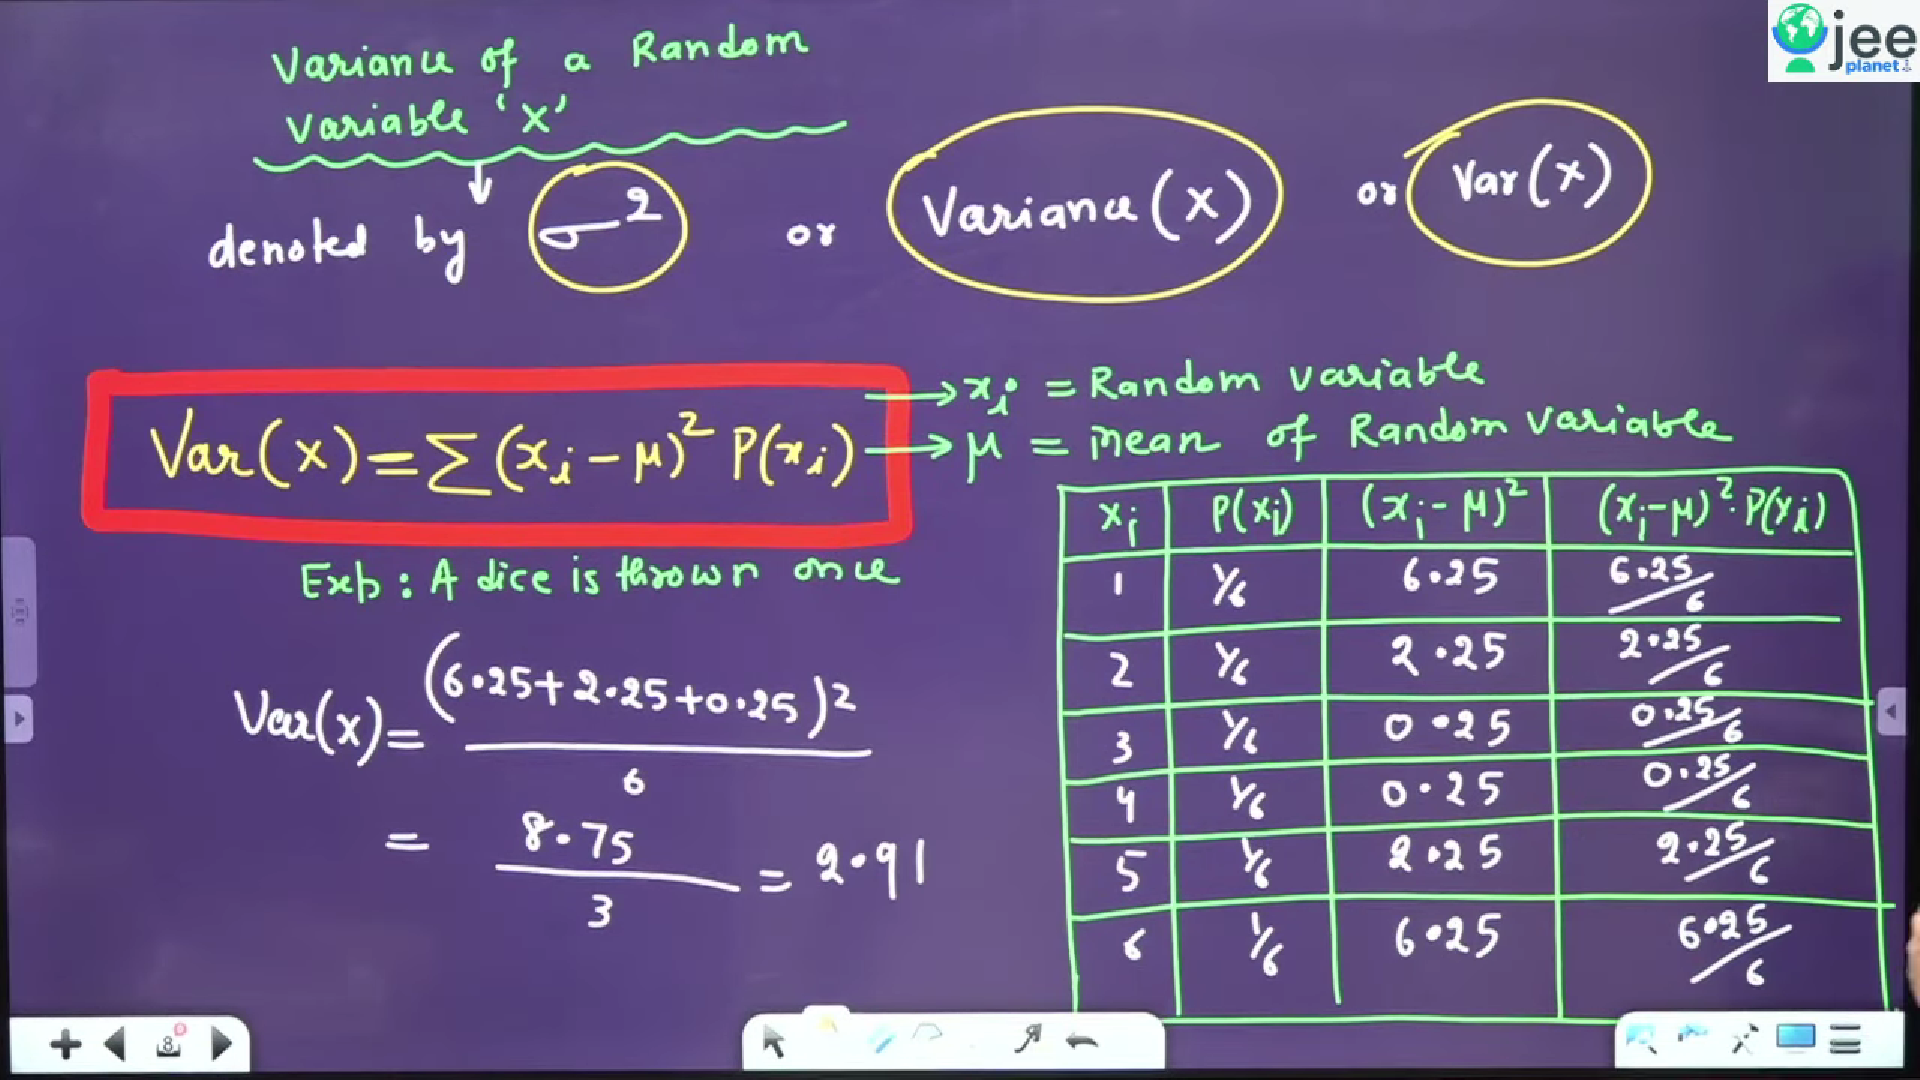 jee
planet
Variance of a Random
variable 'x'
denoted by σ² or Variance(x) or Var(x)
Var(x)=∑(xᵢ-μ)² P(xᵢ)
→xᵢ = Random variable
→μ = mean of Random variable
Exp : A dice is thrown once
Var(x)= (6.25+2.25+0.25)2
6
= 8.75
3
= 2.91
xᵢ P(xᵢ) (xᵢ-μ)² (xᵢ-μ)².P(xᵢ)
1 1/6 6.25 6.25/6
2 1/6 2.25 2.25/6
3 1/6 0.25 0.25/6
4 1/6 0.25 0.25/6
5 1/6 2.25 2.25/6
6 1/6 6.25 6.25/6
8